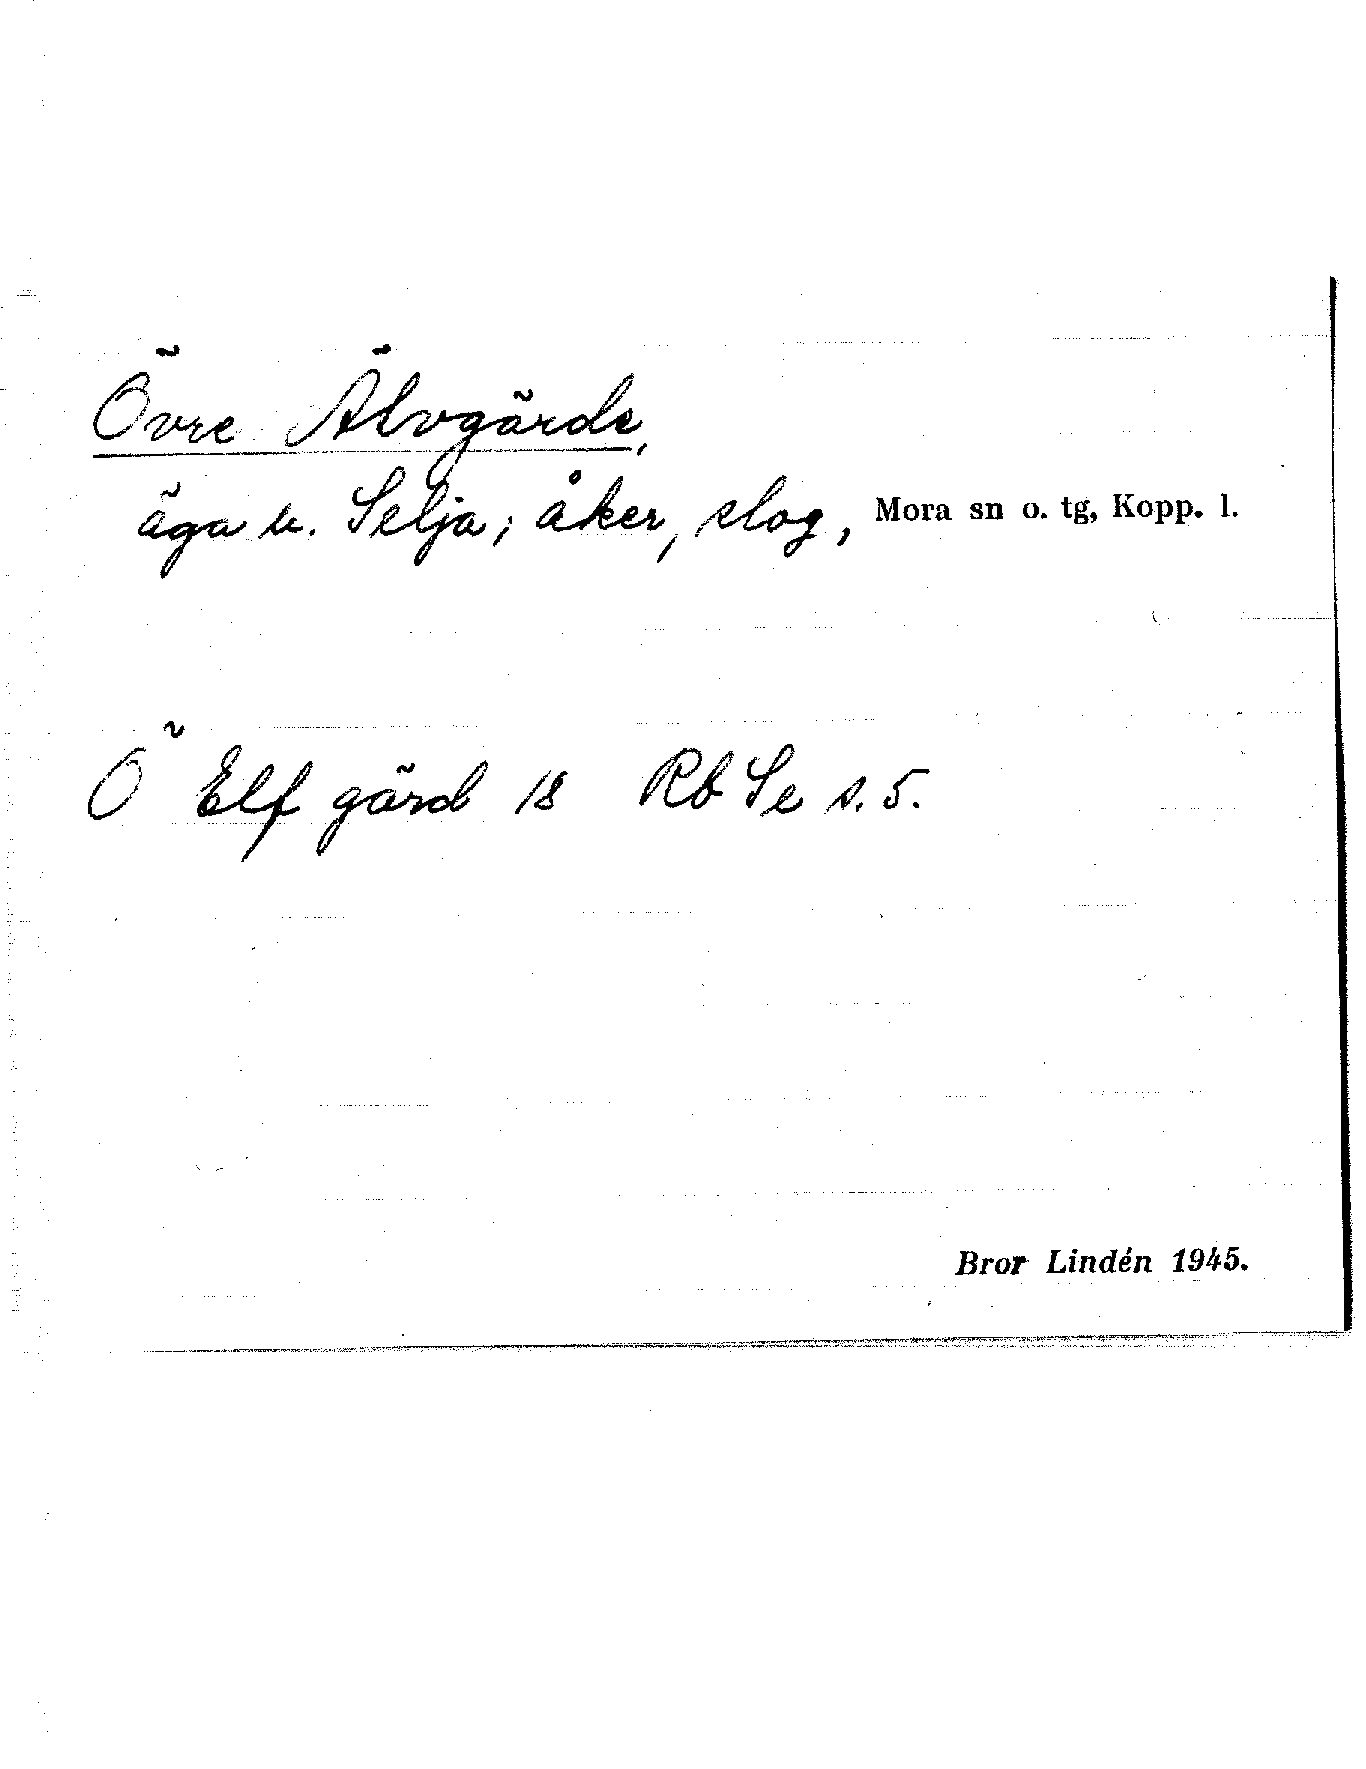 Övre Älvgärde,
äga b. Selja; åker, slog, Mora sn o. tg, Kopp. l.
Ö Elf gärd 18 Rb Se s. 5.
Bror Lindén 1945.